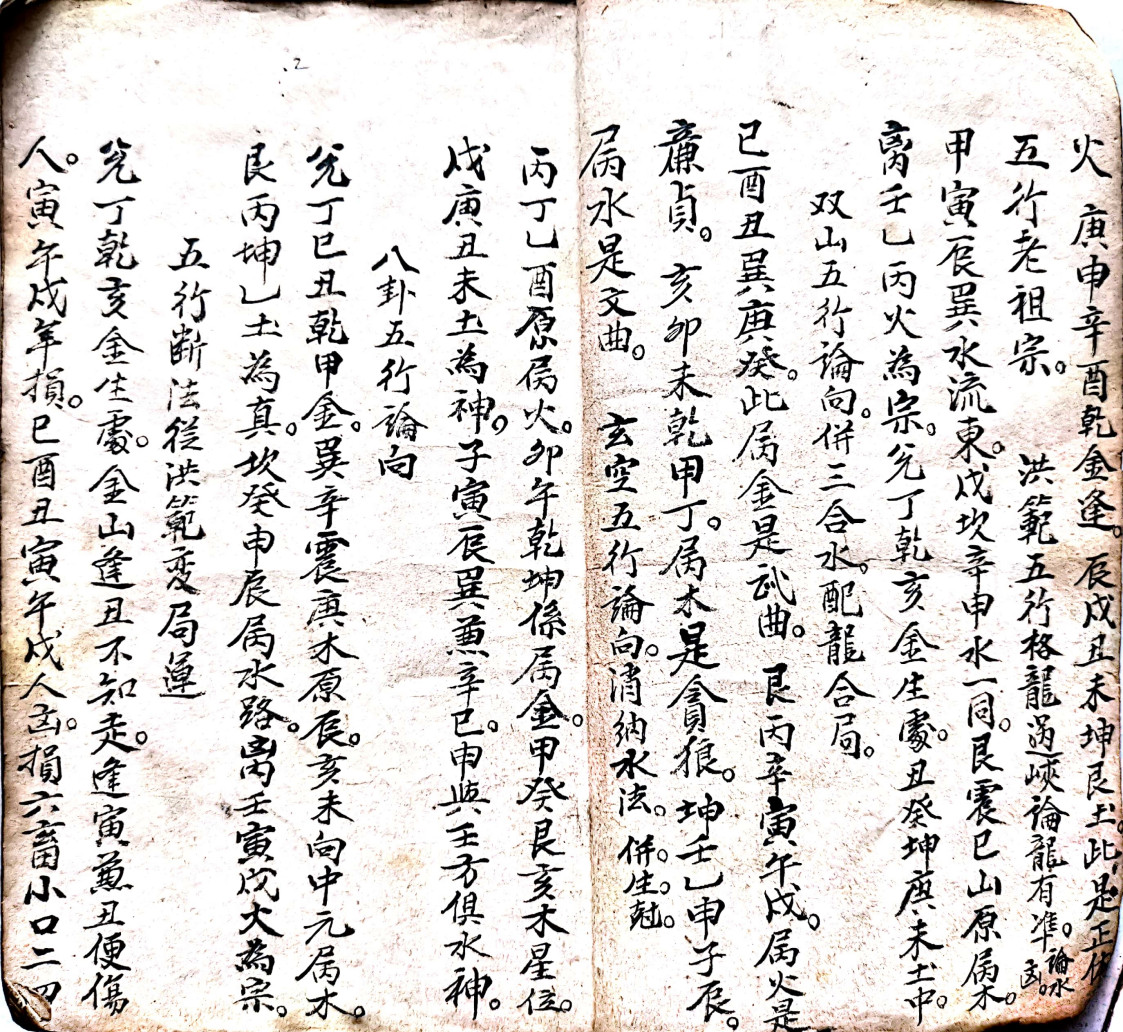 火 庚申辛酉乾金逢。辰戌丑未坤艮土。此是正
五行老祖宗。 洪範五行格龍過峽論龍有準。論水
甲寅辰巽水流東。戌坎辛申水一同。艮震巳山原属木。
离壬乙丙火為宗。兊丁乾亥金生處。丑癸坤庚未土中。
双山五行論向。併三合水。配龍合局。
巳酉丑巽庚癸。此属金是武曲。艮丙辛寅午戌。属火是
廉貞。亥卯未乾甲丁。属木是貪狼。坤壬乙申子辰。
属水是文曲。 玄空五行論向。消納水法。併生尅。
丙丁乙酉原属火。卯午乾坤係属金。甲癸艮亥木星位。
戌庚丑未土為神。子寅辰巽兼辛巳。申與壬方俱水神。
八卦五行論向
兊丁巳丑乾甲金。巽辛震庚木原辰。亥未向中元属木。
艮丙坤乙土為真。坎癸申辰属水路。离壬寅戌火為宗。
五行断法從洪範变局運
兊丁乾亥金生處。金山逢丑不知走。逢寅兼丑便傷
人。寅午戌年損。巳酉丑寅午戌人凶。損六畜小口二四
2